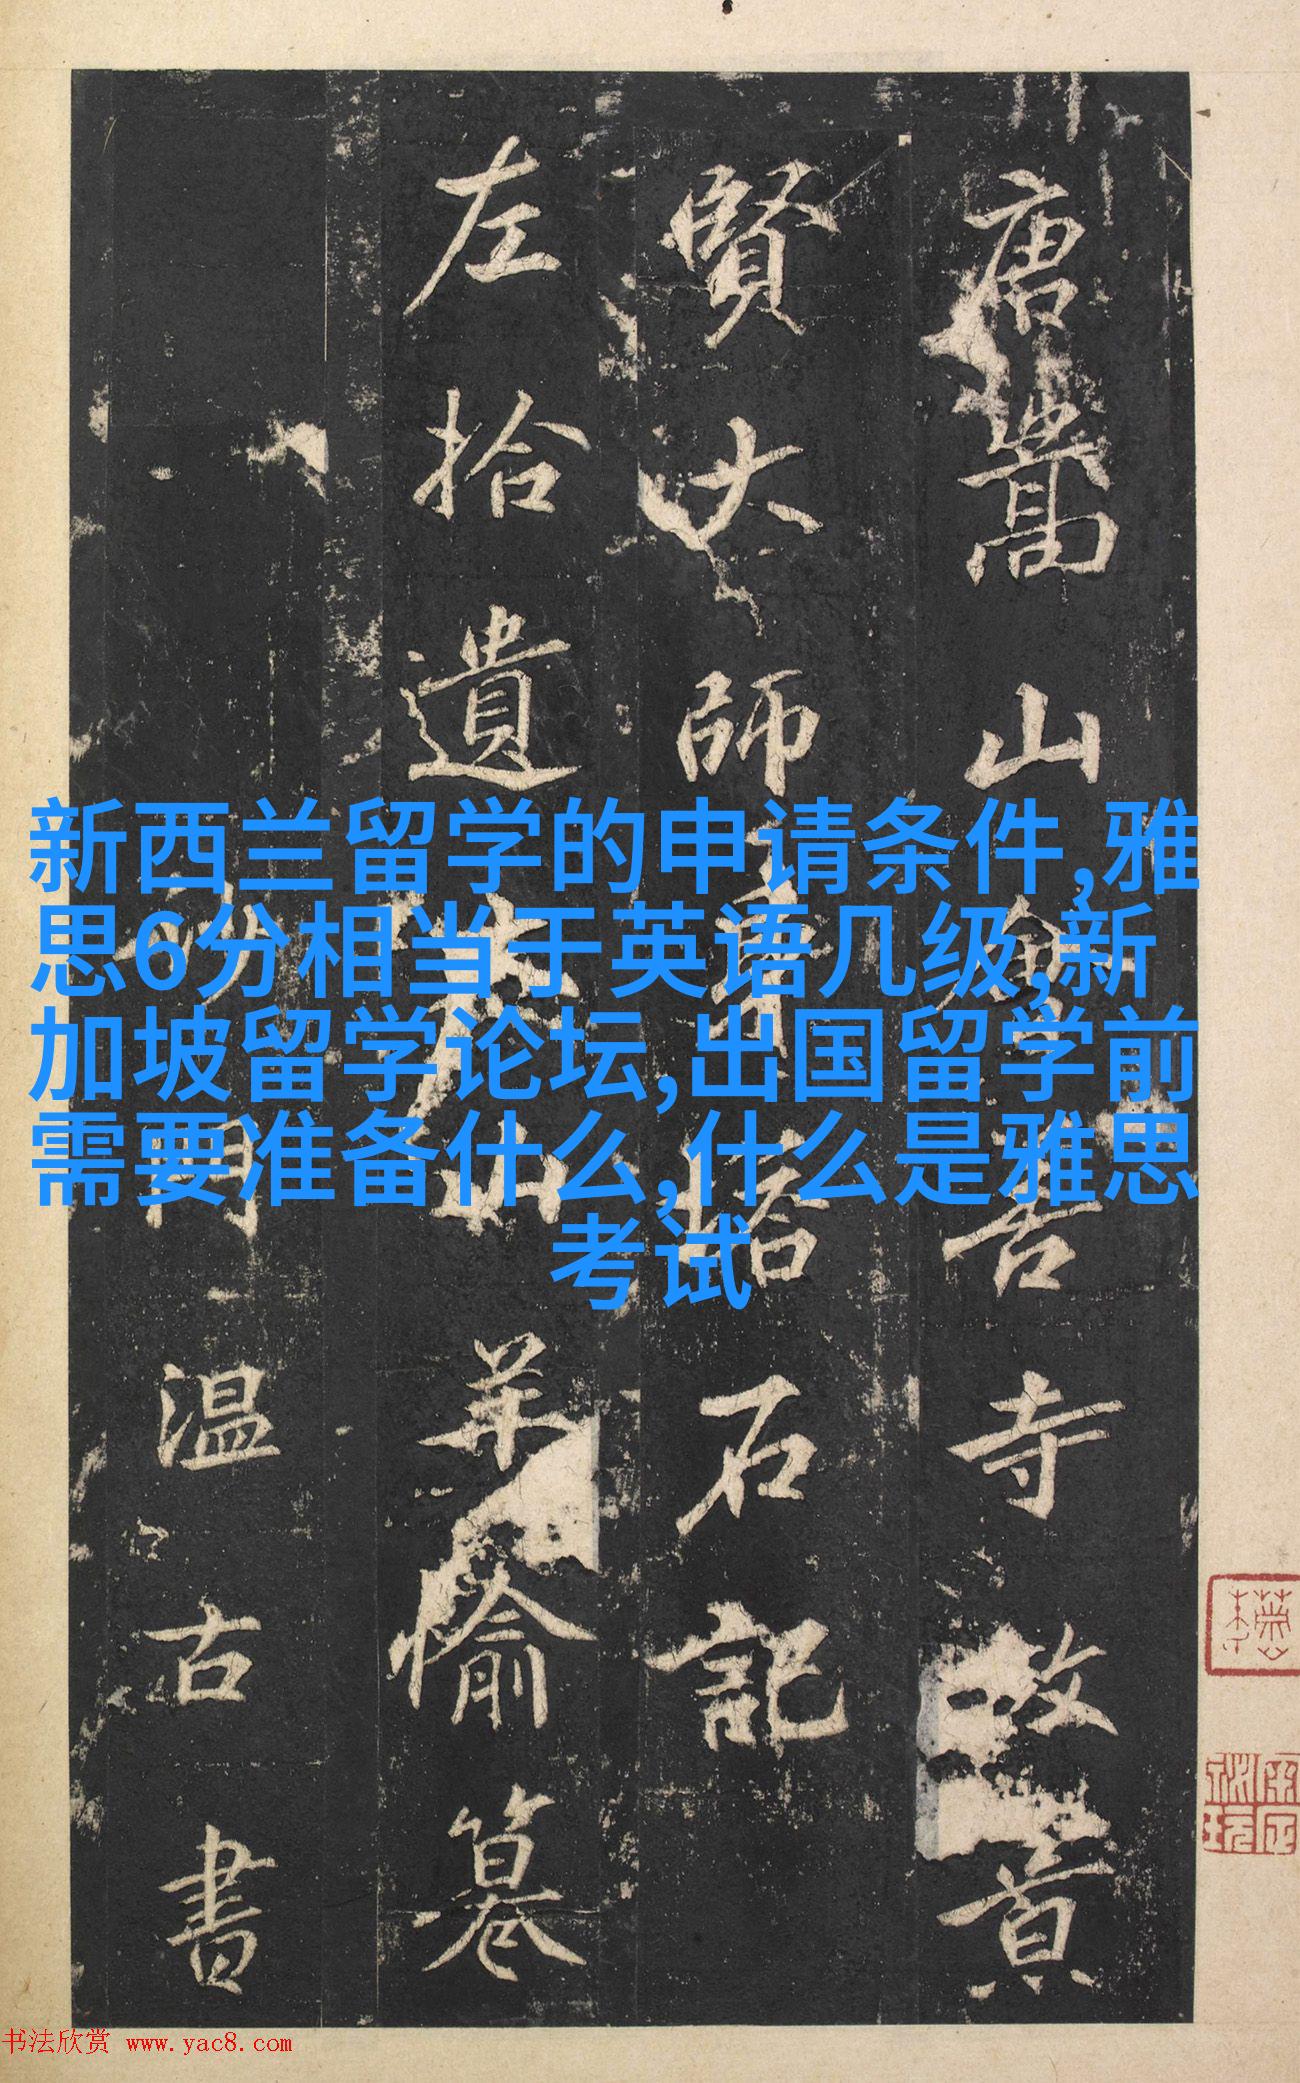 唐嵩山會善寺故景
賢大師身塔石記
左拾遺太山羊愉纂
沙門溫古書
新西兰留学的申请条件,雅
思6分相当于英语几级,新
加坡留学论坛,出国留学前
需要准备什么,什么是雅思
考试
书法欣赏 www.yac8.com